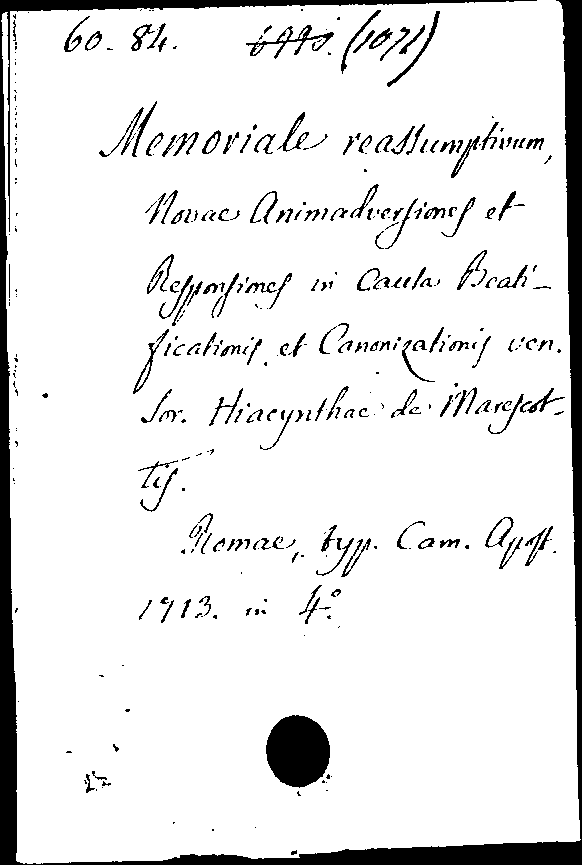 60. 84. (1071)
Memoriale reassumptivum,
Novae Animadversiones et
Responsiones in Causa Beati-
ficationis et Canonizationis ven.
Sor. Hiacynthae de Marescot-
tis.
Romae, typ. Cam. Apost.
1713. in 4°.